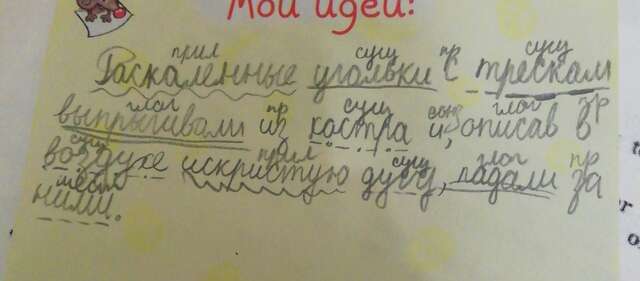 Мои идеи:
прил сущ пр сущ
Раскаленные угольки с трескам
глаг пр сущ союз глаг пр
выпрыгивали из костра и, описав в
сущ прил сущ глаг пр
воздухе искристую дугу, падали за
мест
ними.